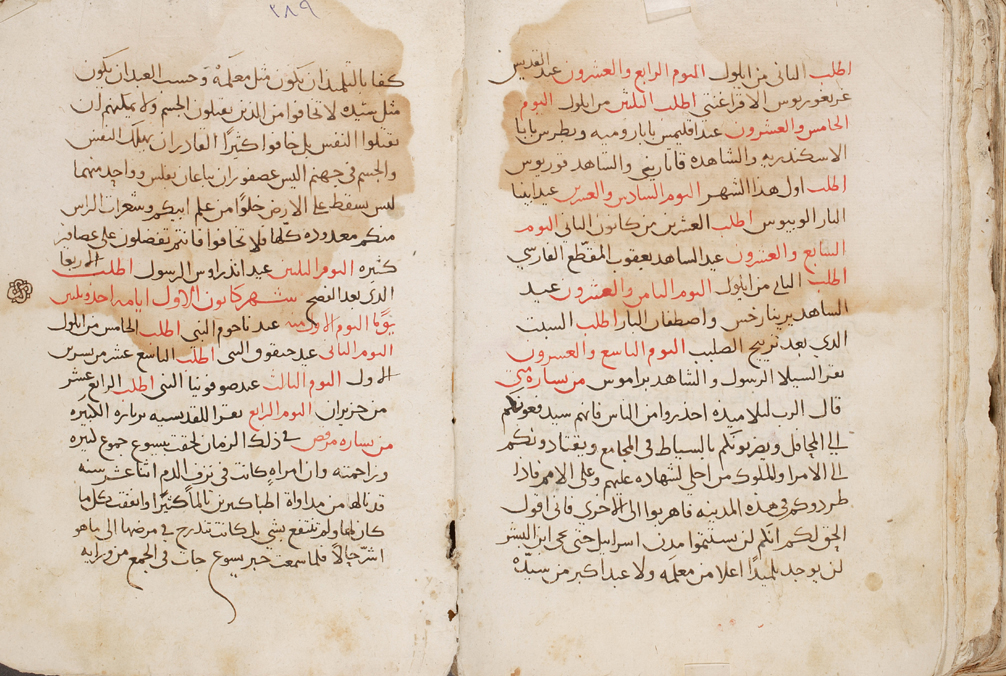 اطلب الثاني من ايلول اليوم الرابع والعشرون عيد القديس
غريغوريوس الاقراغنتي اطلب الثلثين من ايلول اليوم
الخامس والعشرون عيد اقليمس بابا روميه وبطرس بابا
الاسكندريه والشاهده قاتاريني والشاهد قوريوس
اطلب اول هذا الشهر اليوم السادس والعشرين عيد ابينا
البار الوبيوس اطلب العشرين من كانون الثاني اليوم
السابع والعشرون عيد الشاهد يعقوب المقطع الفارسي
اطلب الثاني من ايلول اليوم الثامن والعشرون عيد
الشاهد يرينارخس واصطفان البار اطلب السبت
الذي بعد ترييح الصليب اليوم التاسع والعشرون
نقرا للسبلا الرسول والشاهد براموس من بشارة متى
قال الرب لتلاميذه احذروا من الناس فانهم سيدفعونكم
الى المحافل ويضربونكم بالسياط في المجامع ويقتادونكم
الى الامرا والملوك من اجلي لشهاده عليهم وعلى الامم فاذا
طردوكم في هذه المدينه فاهربوا الى الاخرى فاني اقول
الحق لكم انكم لن تستتموا مدن اسراييل حتى يجي ابن البشر
لن يوجد تلميذا اعلا من معلمه ولا عبد اكبر من سيده
٢٨٩
كفا بالتلميذ ان يكون مثل معلمه وحسب العبد ان يكون
مثل سيده لا تخافوا من الذين يقتلون الجسم ولا يمكنهم ان
يقتلوا النفس بل خافوا كثيرا القادر ان يهلك النفس
والجسم في جهنم اليس عصفوران يباعان بفلس وواحد منهما
ليس يسقط على الارض خلوا من علم ابيكم وشعرات الراس
منكم معدوده كلها فلا تخافوا فانتم تفضلون على عصافير
كثيره اليوم الثلثين عيد اندراوس الرسول اطلب الاربعا
الذي بعد الفصح شهر كانون الاول ايامه احد وثلثين
يوما اليوم الاول منه عيد ناحوم النبي اطلب الخامس من ايلول
اليوم الثاني عيد حبقوق النبي اطلب التاسع عشر من تشرين
الاول اليوم الثالث عيد صوفونيا النبي اطلب الرابع عشر
من حزيران اليوم الرابع نقرا للقديسه برباره الكبيره
من بشاره مرقص في ذلك الزمان لحقت يسوع جموع كثيره
وزاحمته وان امراه كانت في نزف الدم اثنا عشر سنه
قد نالها من مداواة اطبا كثيرين تالما كثيرا وانفقت كل ما
كان لها ولم تنتفع بشي بل كانت تتدرج في مرضها الى ما هو
اشر حالا فلما سمعت خبر يسوع جات في الجمع من ورايه